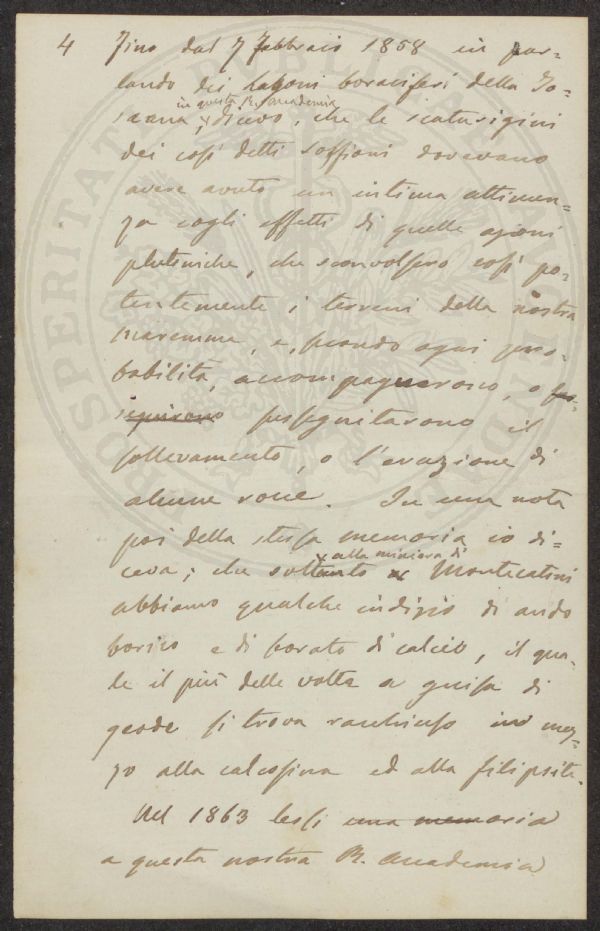 4 Fino dal 7 Febbraio 1858 in par=
lando dei lagoni boraciferi della To=
in questa R. Accademia
scana, dicevo, che le scaturigini
dei così detti soffioni dovevano
avere avuto un intima attinen=
za cogli effetti di quelle azioni
plutoniche, che sconvolsero così po=
tentemente i terreni della nostra
Maremma, e, secondo ogni pro=
babilità, accompagnarono, o
seguirono susseguitarono il
sollevamento, o l'eruzione di
alcune rocce. In una nota
poi della stessa memoria io di=
alla miniera di
ceva; che soltanto Montecatini
abbiamo qualche indizio di acido
borico e di borato di calcio, il qua=
le il più delle volte a guisa di
geode si trova racchiuso in mez=
zo alla calcosina ed alla filipsite.
Nel 1863 lessi una memoria
a questa nostra R. Accademia
PROSPERITATI PUBLICAE AUGENDAE